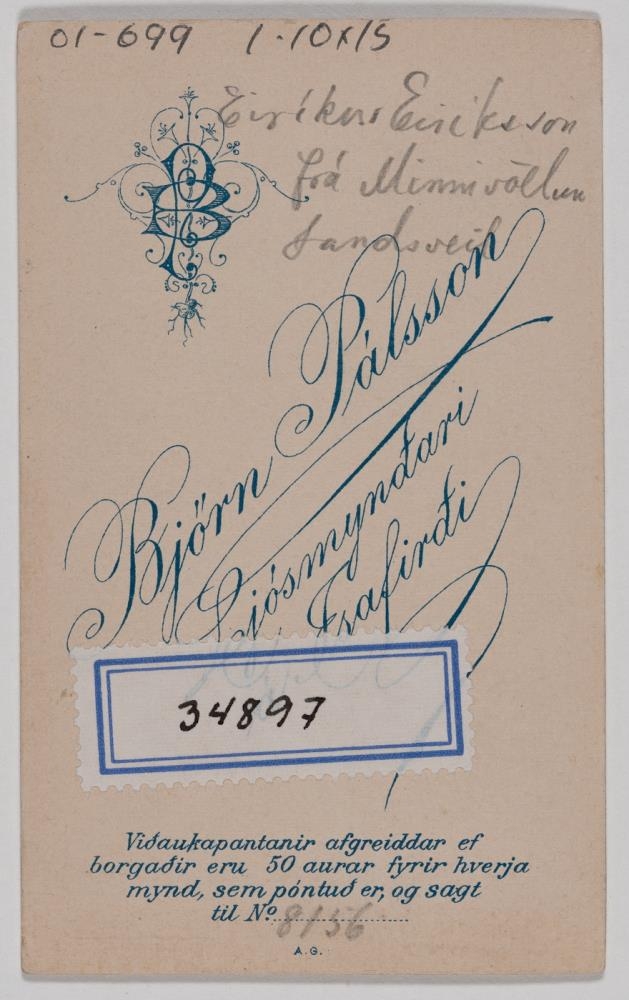 01-699 1-10x15
Eiríkur Eiríksson
frá Minnivöllum
Landsveit
Björn Pálsson
Ljósmyndari
Ísafirði
34897
Viðaukapantanir afgreiddar ef
borgaðir eru 50 aurar fyrir hverja
mynd, sem póntuð er, og sagt
til No 8156
A.G.